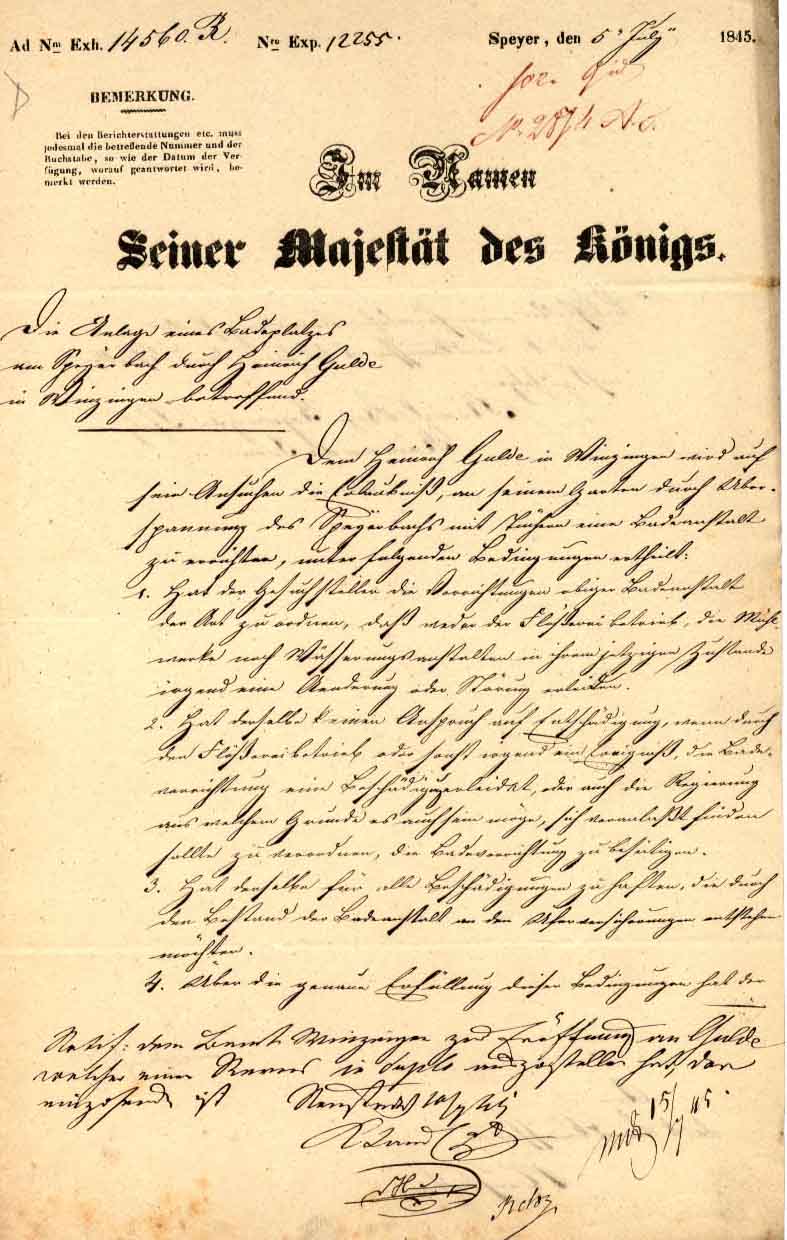 Ad Nm Exh. 14560. R. Nro Exp. 12255. Speyer, den 5n July 1845.
No. 2874
BEMERKUNG.
Bei den Berichterstattungen etc. muss
jedesmal die betreffende Nummer und der
Buchstabe, so wie der Datum der Ver-
fügung, worauf geantwortet wird, be-
merkt werden.
Im Namen
Seiner Majestät des Königs.
Die Anlage eines Badeplatzes
am Speyerbach durch Heinrich Gulde
in Winzingen betreffend.
Dem Heinrich Gulde in Winzingen wird auf
sein Ansuchen die Erlaubniß, an seinem Garten durch Über-
spannung des Speyerbachs mit eine Badeanstalt
zu errichten, unter folgenden Bedingungen ertheilt:
1. Hat der Gesuchsteller die Vorrichtungen obiger Badeanstalt
der Art zu ordnen, daß weder der Flößereibetrieb, die Mühl-
werke noch Wässerungsanstalten in ihrem jetzigen Zustande
irgend eine Aenderung oder Störung erleiden.
2. Hat derselbe keinen Anspruch auf Entschädigung, wenn durch
den Flößereibetrieb oder sonst irgend ein Ereigniß, die Bade-
vorrichtung eine Beschädigung erleidet, oder auch die Regierung
aus welchem Grunde es auch sein möge, sich veranlaßt finden
sollte zu verordnen, die Badevorrichtung zu beseitigen.
3. Hat derselbe für alle Beschädigungen zu haften, die durch
den Bestand der Badeanstalt an den Uferversicherungen entstehen
möchten.
4. Über die genaue Erfüllung dieser Bedingungen hat der
Notif: dem Winzingen zur Eröffnung an Gulde
welcher einen Revers in duplo auszustellen hat, der
einzusenden ist Neustadt
K. Land
15/7 45.